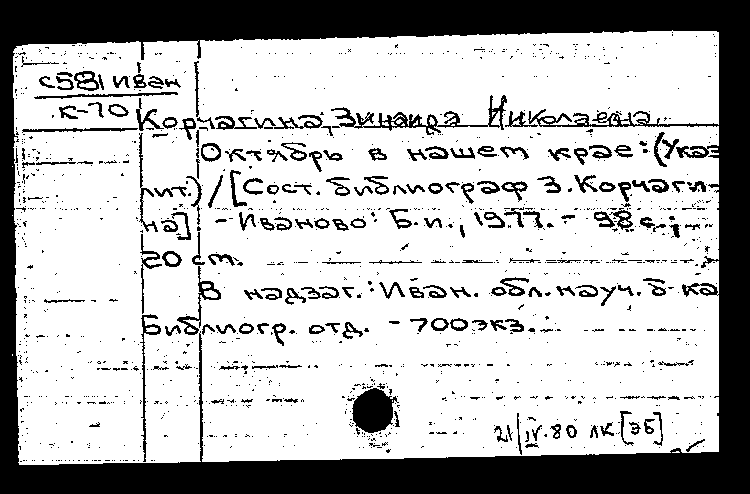 с581 Иван
К-70
Корчагина, Зинаида Николаевна.
Октябрь в нашем крае: (Указ
лит.) / [Сост. библиограф З. Корчаги-
на]. - Иваново: Б.и., 1977. - 98 с.;
20 см.
В надзаг.: Иван. обл. науч. б-ка
Библиогр. отд. - 700 экз.
21/IV.80 ЛК [ЭБ]